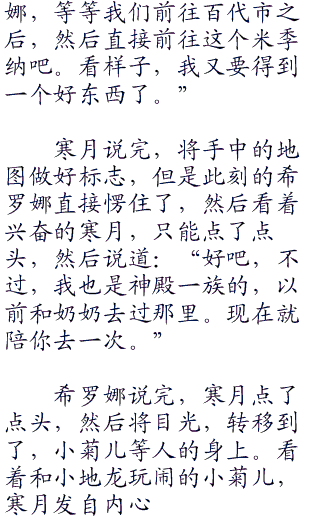 娜，等等我们前往百代市之
后，然后直接前往这个米季
纳吧。看样子，我又要得到
一个好东西了。”
寒月说完，将手中的地
图做好标志，但是此刻的希
罗娜直接愣住了，然后看着
兴奋的寒月，只能点了点
头，然后说道：“好吧，不
过，我也是神殿一族的，以
前和奶奶去过那里。现在就
陪你去一次。”
希罗娜说完，寒月点了
点头，然后将目光，转移到
了，小菊儿等人的身上。看
着和小地龙玩闹的小菊儿，
寒月发自内心